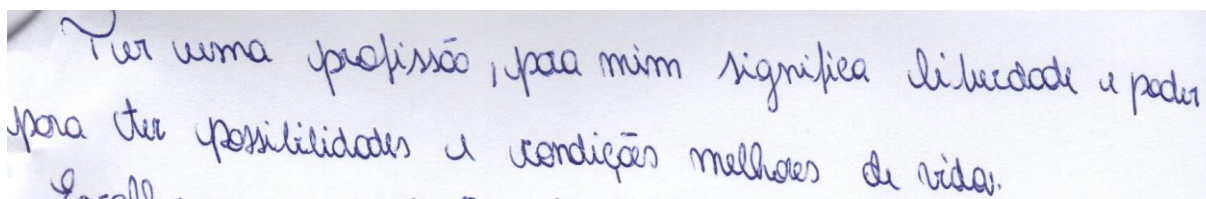 Ter uma profissão, para mim significa liberdade e poder
para ter possibilidades e condições melhores de vida.